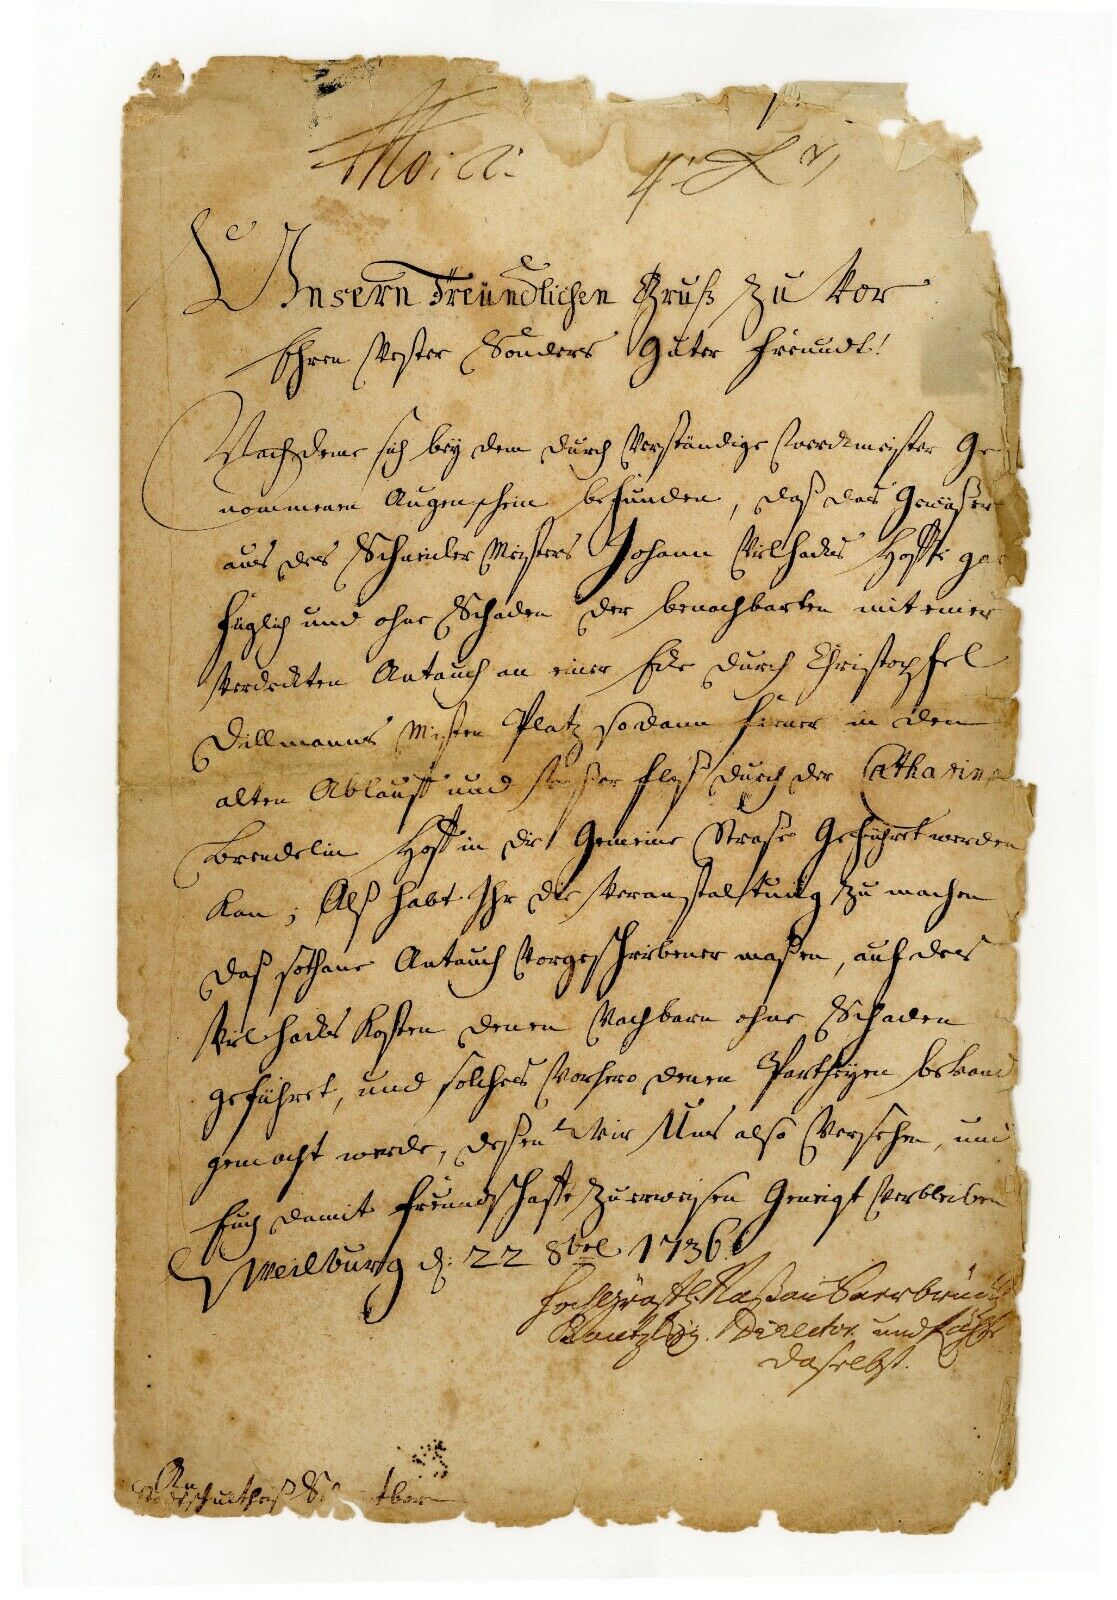 Unsern Freündlichen Gruß zu Vor
Ehren Vester Sonders Guter Freündt!
Nachdeme sich bey dem durch Verständige Werckmeister Ge
nommenen Augenschein befunden, daß das Gewäßer
aus des Schneider Meisters Johann Vilhards Hoffe gar
füglich und ohne Schaden der benachbarten mit einer
Verdeckten Antauch an einer Ecke durch Christopfel
Dillmanns Misten Platz sodann ferner in den
alten Ablauff und floß durch der Catharina
Brendelin Hoff in die Gemeine Straße Geführet werden
kan; Alß habt Ihr die Veranstaltung zu machen
daß sothane Antauch Vorgeschribener maßen, auf des
Vilhards Kosten denen Nachbarn ohne Schaden
geführet, und solches Vorhero denen Partheyen bekand
gemacht werde, deßen Wir Uns also Versehen, und
Euch damit Freundschafft zu erweisen Geneigt Verbleiben
Weilburg d: 22 8brl 1736.
Hochgräffl. Naßau Saarbrück
Cantzley Director und Räthe
daselbst.
An
schultheiß